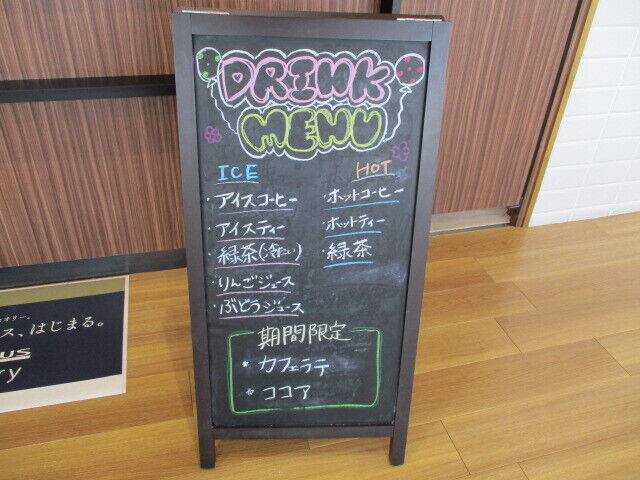 DRINK
MENU
ICE
・アイスコーヒー
・アイスティー
・緑茶(冷たい)
・りんごジュース
・ぶどうジュース
HOT
・ホットコーヒー
・ホットティー
・緑茶
期間限定
* カフェラテ
* ココア
ス、はじまる。